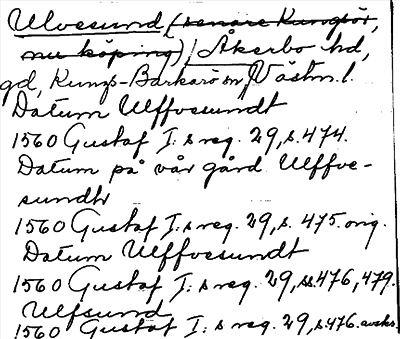 Ulvesund (senare Kungsör,
nu köping), Åkerbo hd,
gd, Kungs-Barkarö sn, Västm. l.
Datum Ulffvesundt
1560 Gustaf I: s reg. 29, s. 474.
Datum på vår gård Ulffve-
sundtt
1560 Gustaf I: s reg. 29, s. 475. orig.
Datum Ulffvesundt
1560 Gustaf I: s reg. 29, ss. 476, 479.
Ulfsund
1560 Gustaf I: s reg. 29, s. 476. avskr.